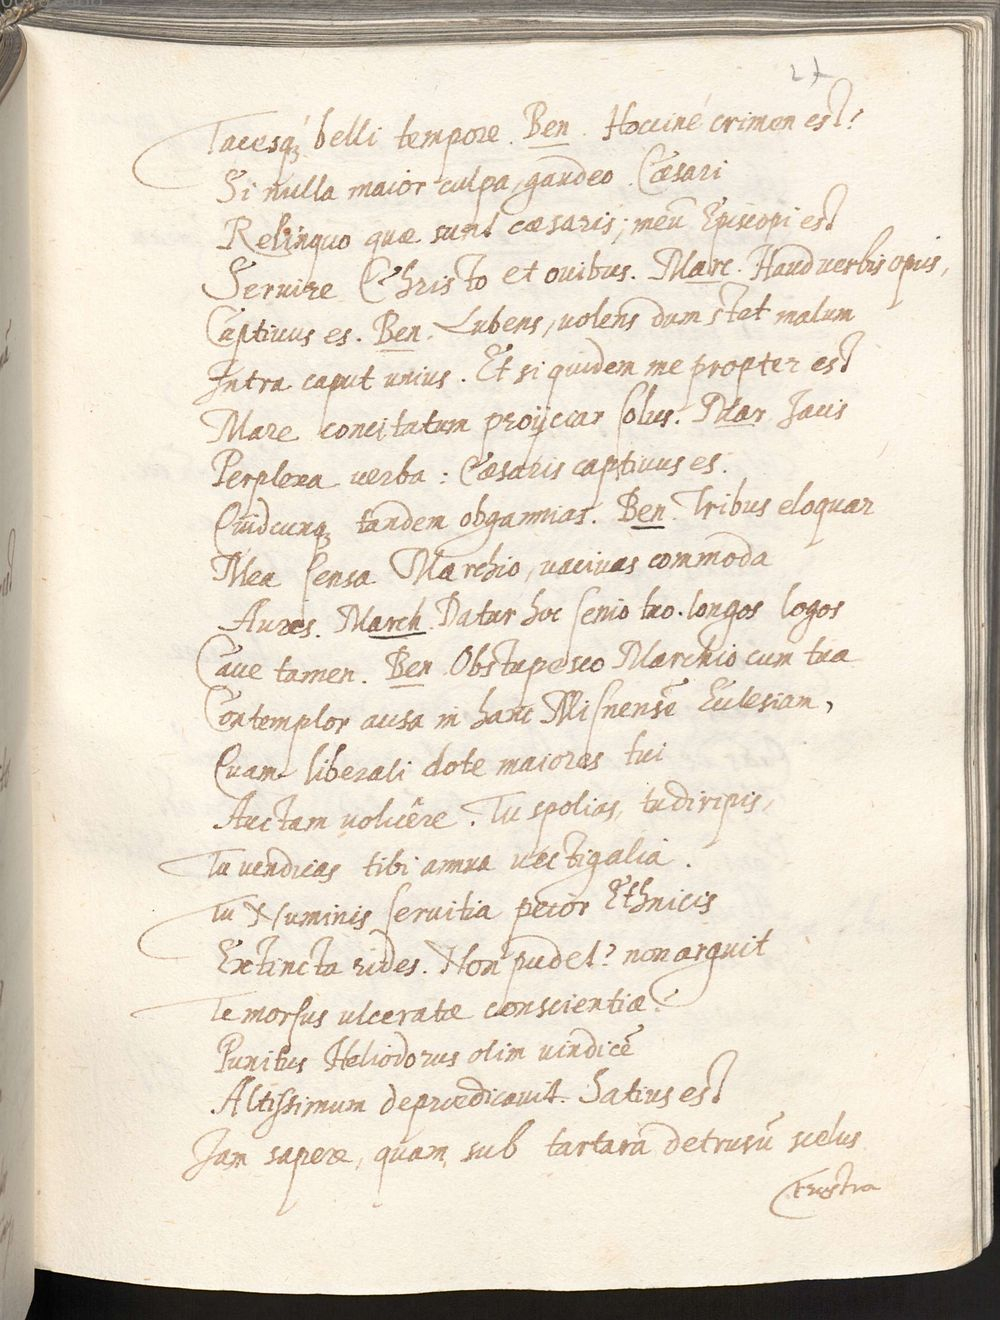 27
Tacesq; belli tempore. Ben. Hoccine crimen est?
Si nulla maior culpa, gaudeo. Cæsari
Relinquo quæ sunt cæsaris; meũ Episcopi est
Seruire Christo et ouibus. Marc. Haud verbis opus,
Captiuus es. Ben. Lubens, uolens dum stet malum
Intra caput unius. Et siquidem me propter est
Mare concitatum proijciar solus. Mar Jacis
Perplexa verba: Cæsaris captiuus es.
Quidcunq; tandem obgannias. Ben. Tribus eloquar
Mea sensa Marchio, uaciuas commoda
Aures. March. Datur hoc senio tuo. longos logos
Caue tamen. Ben. Obstupesco Marchio cum tua
Contemplor ausa in hanc Misnensẽ Ecclesiam,
Quam liberali dote maiores tui
Auctam uoluêre. Tu spolias, tu diripis,
Tu vendicas tibi annua uectigalia.
Tu Numinis seruitia pecor Ethnicis
Extincta rides. Non pudet? non arguit
Te morsus ulceratæ conscientiæ?
Punitus Heliodorus olim uindicẽ
Altissimum deprædicauit. Satius est
Jam sapere, quam sub tartara detrusũ scelus
frustra